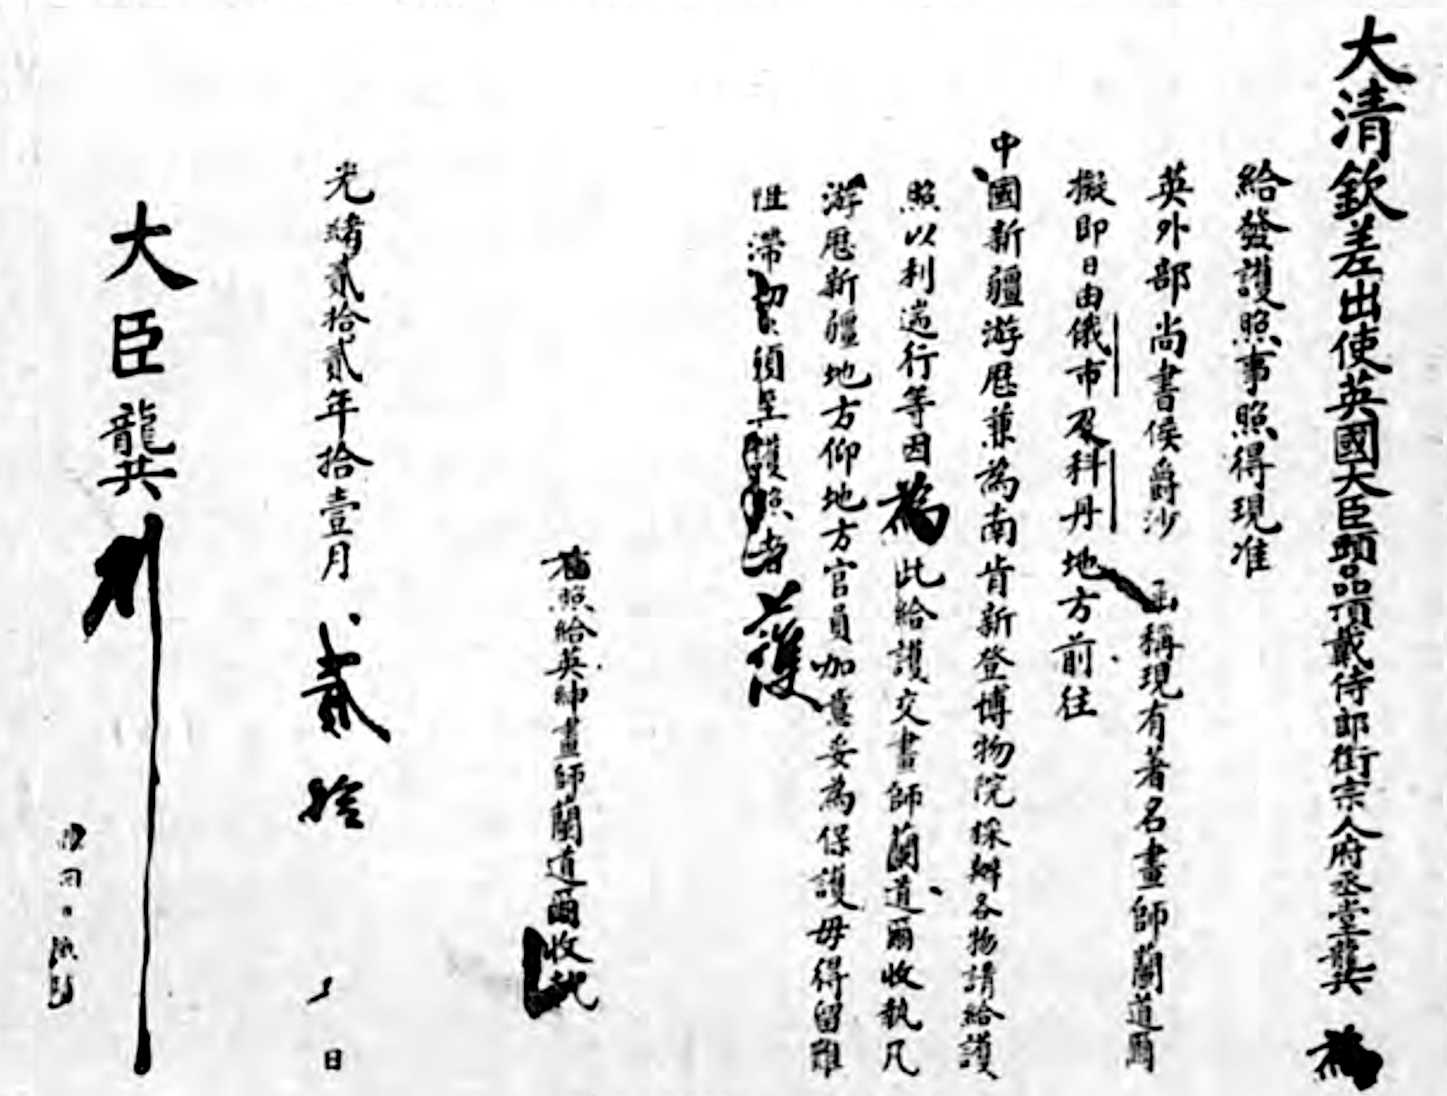 大清欽差出使英國大臣頭品頂戴侍郎銜宗人府丞堂龔 為
給發護照事照得現准
英外部尚書侯爵沙 函稱現有著名畫師蘭道爾
擬即日由俄市及科丹地方前往
中國新疆游歷兼為南肯新登博物院採辦各物請給護
照以利遄行等因為此給護交畫師蘭道爾收執凡
游歷新疆地方仰地方官員加意妥為保護毋得留難
阻滯切切須至護照者 護
右照給英紳畫師蘭道爾收執
光緒貳拾貳年拾壹月貳拾 日
大臣龔